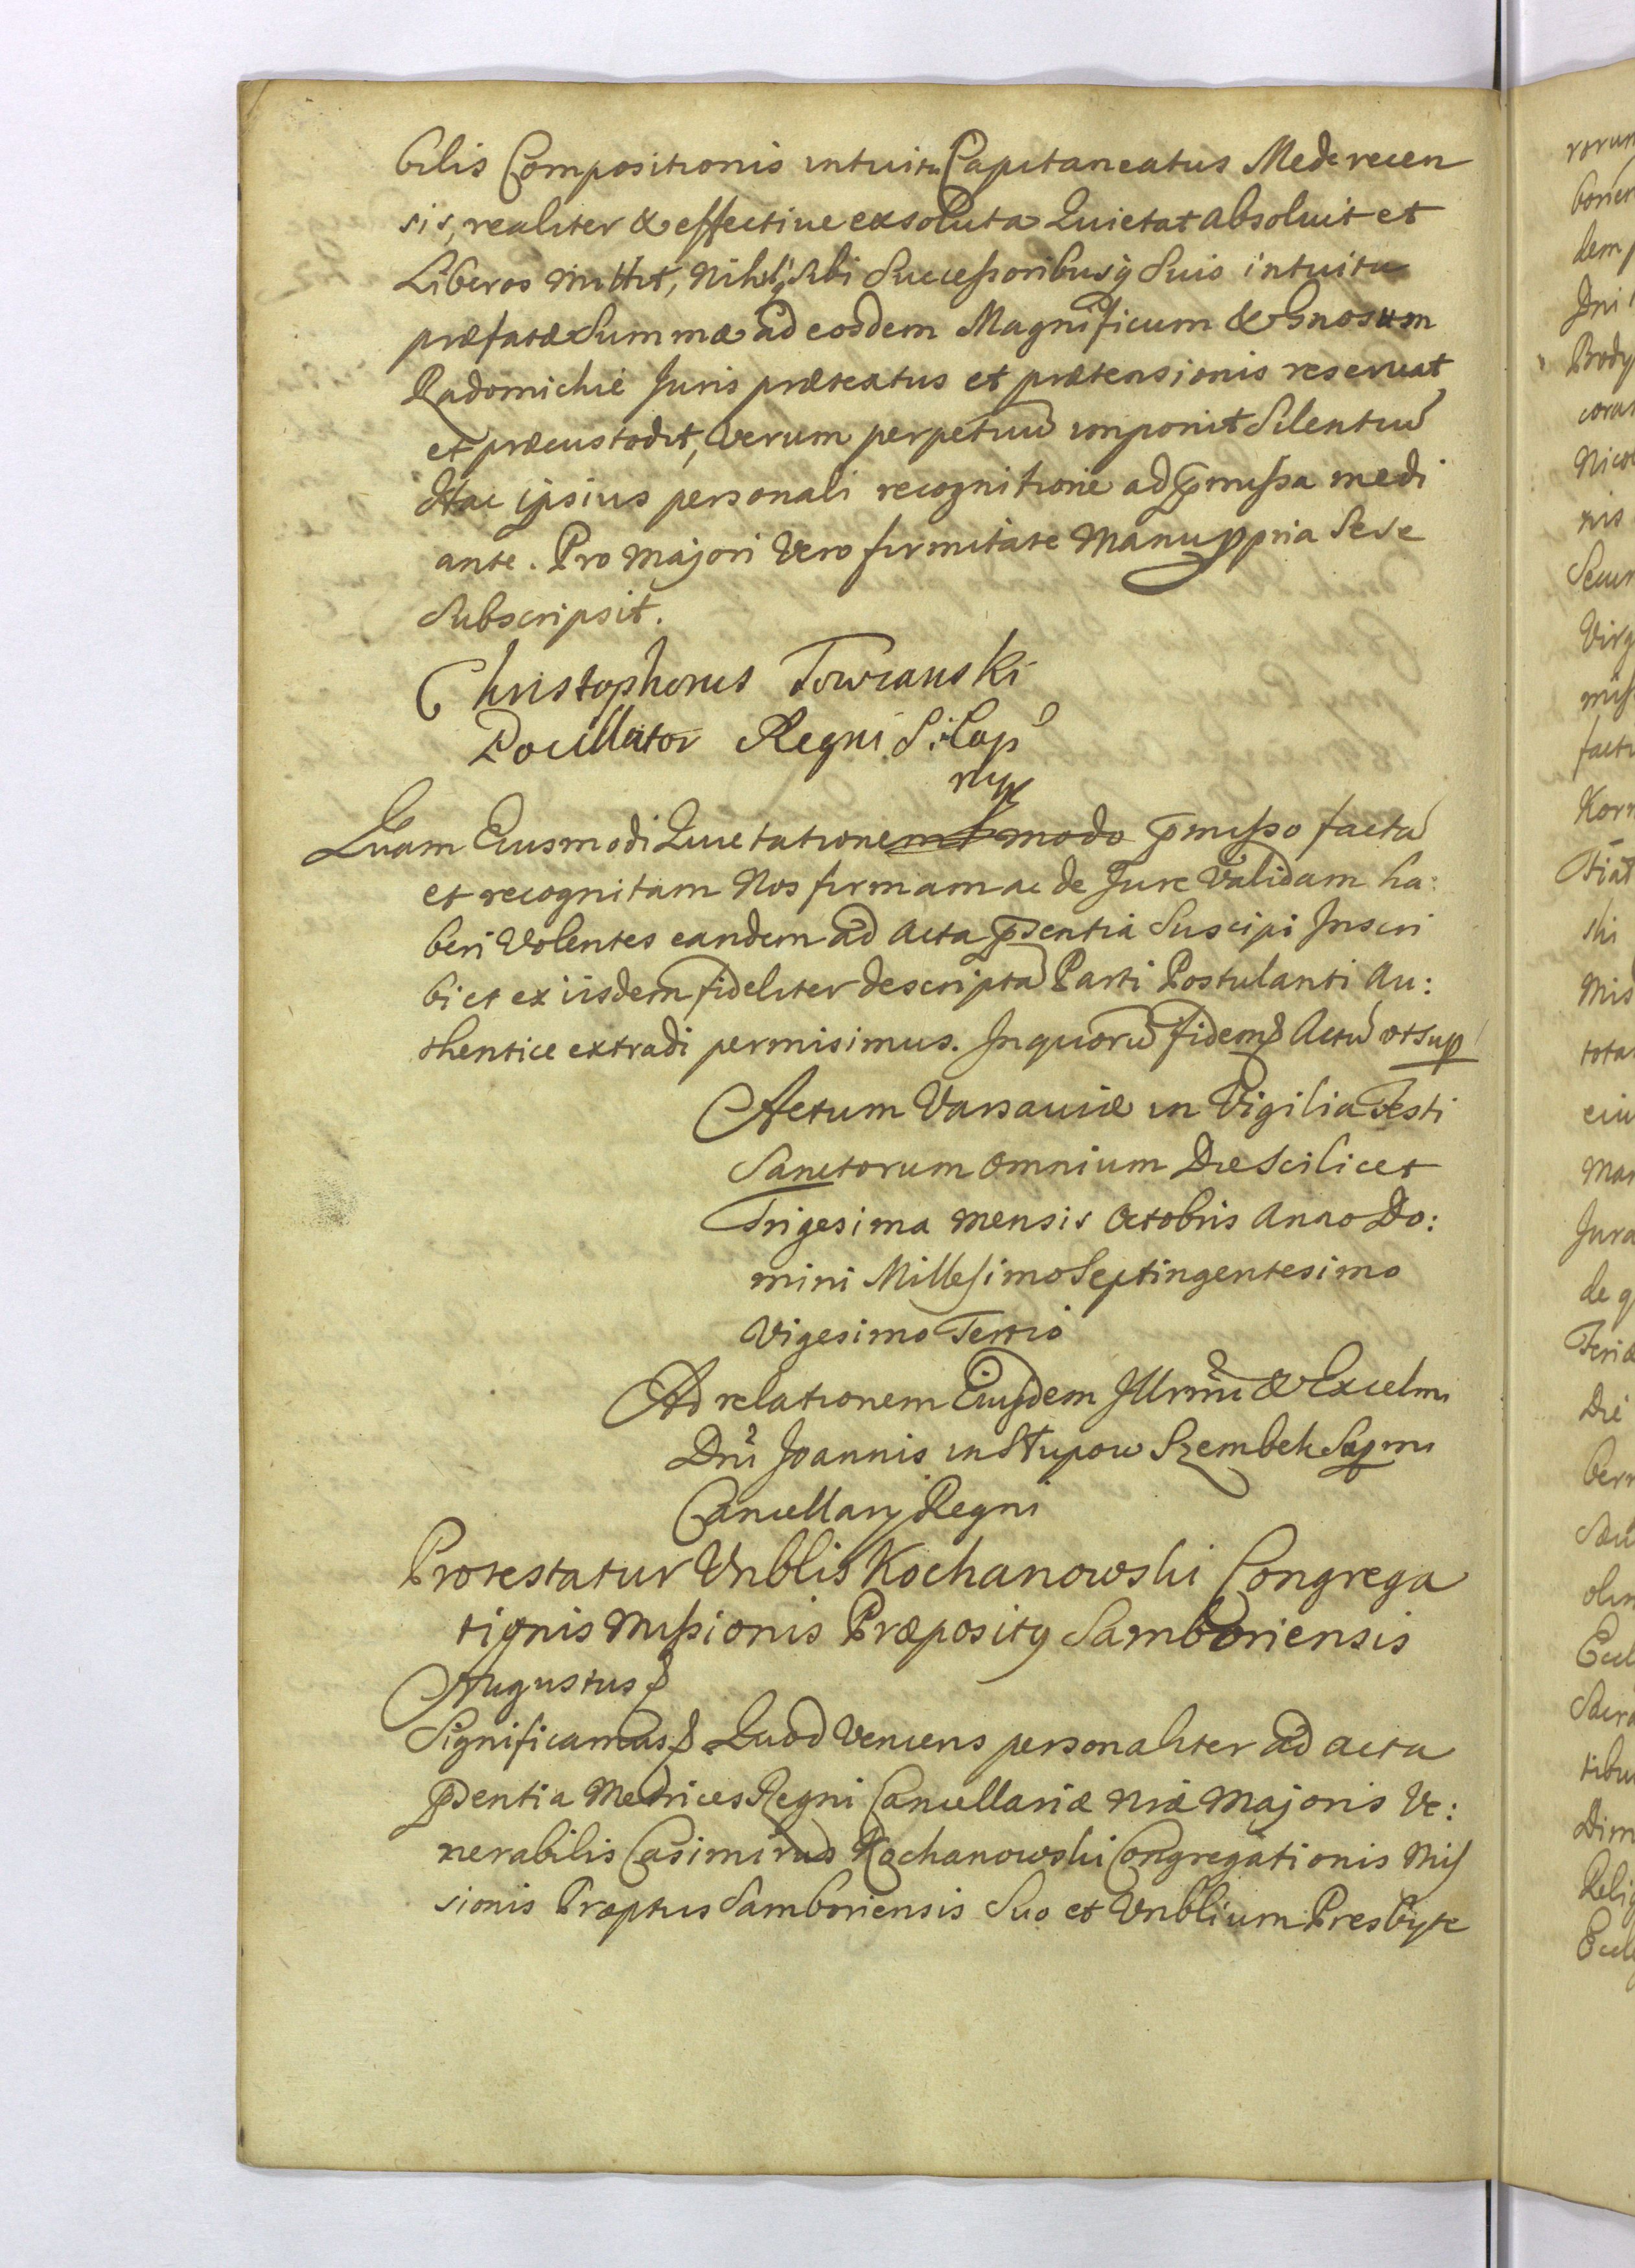 bilis Compositionis intuitu Capitaneatus Mederecen
sis, realiter & effective exsoluta Quietat absoluit et
Liberos mittit, Nihilq sibi Successoribusq Suis intuitu
præfatæ Summæ ad eosdem Magnificum & Gnosum
Radomichie Juris prætextus et prætensionis reservat
et præcustodit, verum perpetuū imponit Silentiū
Hac ipsius personali recognitione ad p̄missa medi
ante. Pro Majori Vero firmitate Manu ppria Sese
Subscripsit.
Christophorus Towianski
Pocillator Regni S: Cap
mp
Quam Eiusmodi Quietationem modo p̄misso factā
et recognitam Nos firmam ac de Jure Validam ha:
beri Volentes eandem ad Acta p̄sentia Suscipi Inscri
bi et ex iisdem fideliter descriptā Parti Postulanti Au:
thentice extradi permisimus. In quorū fidem Actū ut sup
Actum Varsaviæ in Vigilia Festi
Sanctorum Omnium Die Scilicet
Trigesima Mensis Octobris Anno Do:
mini Millesimo Septingentesimo
Vigesimo Tertio
Ad relationem Eiusdem Illrmi & Excelmi
Dni Joannis in Słupow Szembek Supmi
Cancellarij Regni
Protestatur Vnblis Kochanowski Congrega
tionis Missionis Præpositq Samboriensis
Augustus
Significamus Quod Veniens personaliter ad acta
p̄sentia Metrices Regni Cancellariæ Nræ Majoris Ve:
nerabilis Casimirus Kochanowski Congregationis Mis
sionis Præptus Samboriensis Suo et Vnblium Presbyte
rorum
dem
Jni
Nicol
nis
Virg
Korn
ski
Mis
tota
Jura
de q
Die